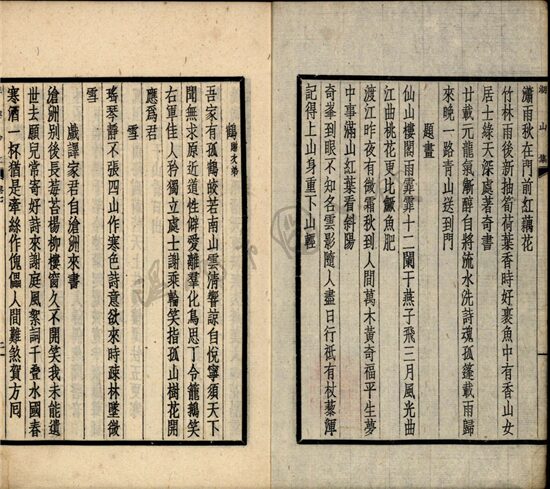 瀟雨秋在門前紅藕花
竹林雨後新抽筍荷葉香時好裹魚中有香山女
居士綠天深處著奇書
廿載元龍氣漸醇自將流水洗詩魂孤蓬載雨歸
來晚一路青山送到門
題畫
仙山樓閣雨霏霏十二闌干燕子飛三月風光曲
江曲桃花更比鱖魚肥
渡江昨夜有微霜秋到人間萬木黃奇福平生夢
中事滿山紅葉看斜陽
奇峯到眼不知名雲影隨人盡日行祇有杖藜渾
記得上山身重下山輕
鶴
吾家有孤鶴皎若南山雲清聲諒自悅寧須天下
聞無求原近道性僻愛離羣化鳥思丁令籠鵝笑
右軍佳人矜獨立處士謝乘輪笑指孤山樹花開
應爲君
雪
瑤琴靜不張四山作寒色詩意欲來時疎林墜微
雪
戲譯家君自滄洲來書
滄洲别後長莓苔楊柳樓窗久不開笑我未能遺
世去願兒常寄好詩來謝庭風絮詞千疊水國春
寒酒一杯猶是牽絲作傀儡人間難煞賀方回